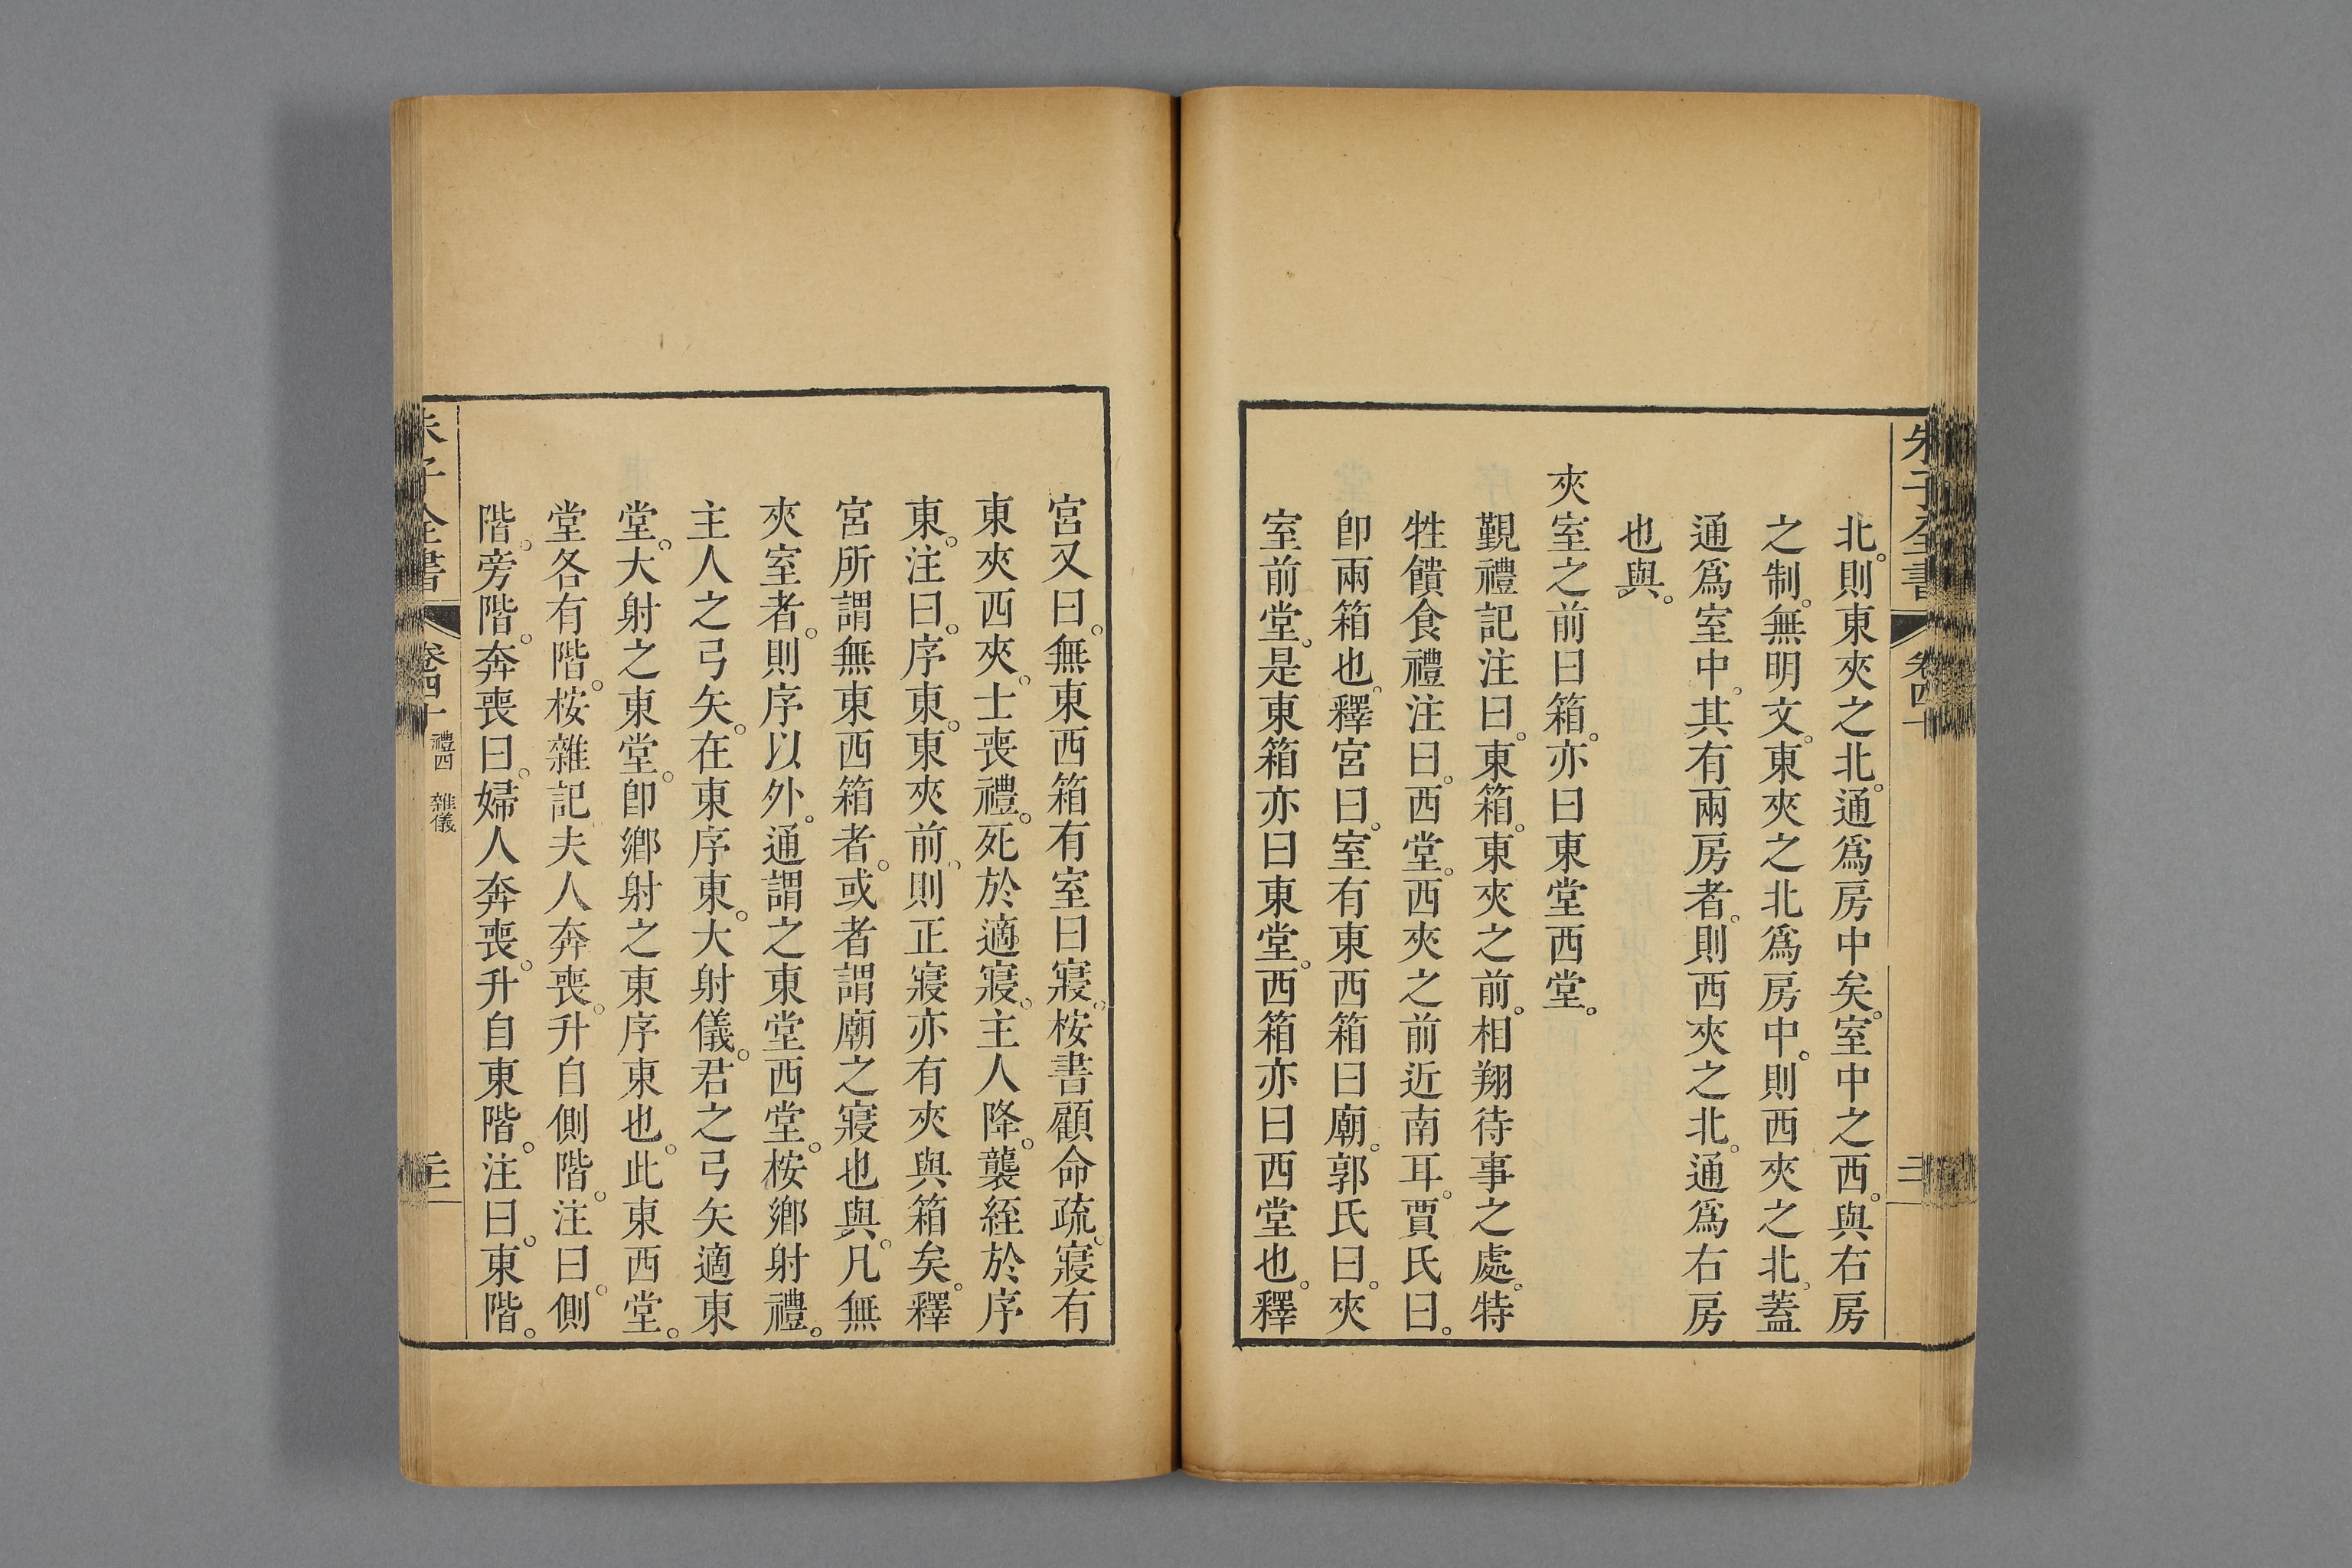 北。則東夾之北。通爲房中矣。室中之西。與右房
之制。無明文。東夾之北爲房中。則西夾之北。蓋
通爲室中。其有兩房者。則西夾之北。通爲右房
也與。
夾室之前曰箱。亦曰東堂西堂。
覲禮記注曰。東箱。東夾之前。相翔待事之處。特
牲饋食禮注曰。西堂。西夾之前近南耳。賈氏曰。
卽兩箱也。釋宮曰。室有東西箱曰廟。郭氏曰。夾
室前堂。是東箱亦曰東堂。西箱亦曰西堂也。釋
宮又曰。無東西箱有室曰寢。桉書顧命疏。寢有
東夾西夾。士喪禮。死於適寢。主人降。襲絰於序
東。注曰。序東。東夾前。則正寢亦有夾與箱矣。釋
宮所謂無東西箱者。或者謂廟之寢也與。凡無
夾室者。則序以外。通謂之東堂西堂。桉鄉射禮。
主人之弓矢。在東序東。大射儀。君之弓矢適東
堂。大射之東堂。卽鄉射之東序東也。此東西堂。
堂各有階。桉雜記夫人奔喪。升自側階。注曰。側
階。旁階。奔喪曰。婦人奔喪。升自東階。注曰。東階。
朱子全書 卷四十 禮四 雜儀